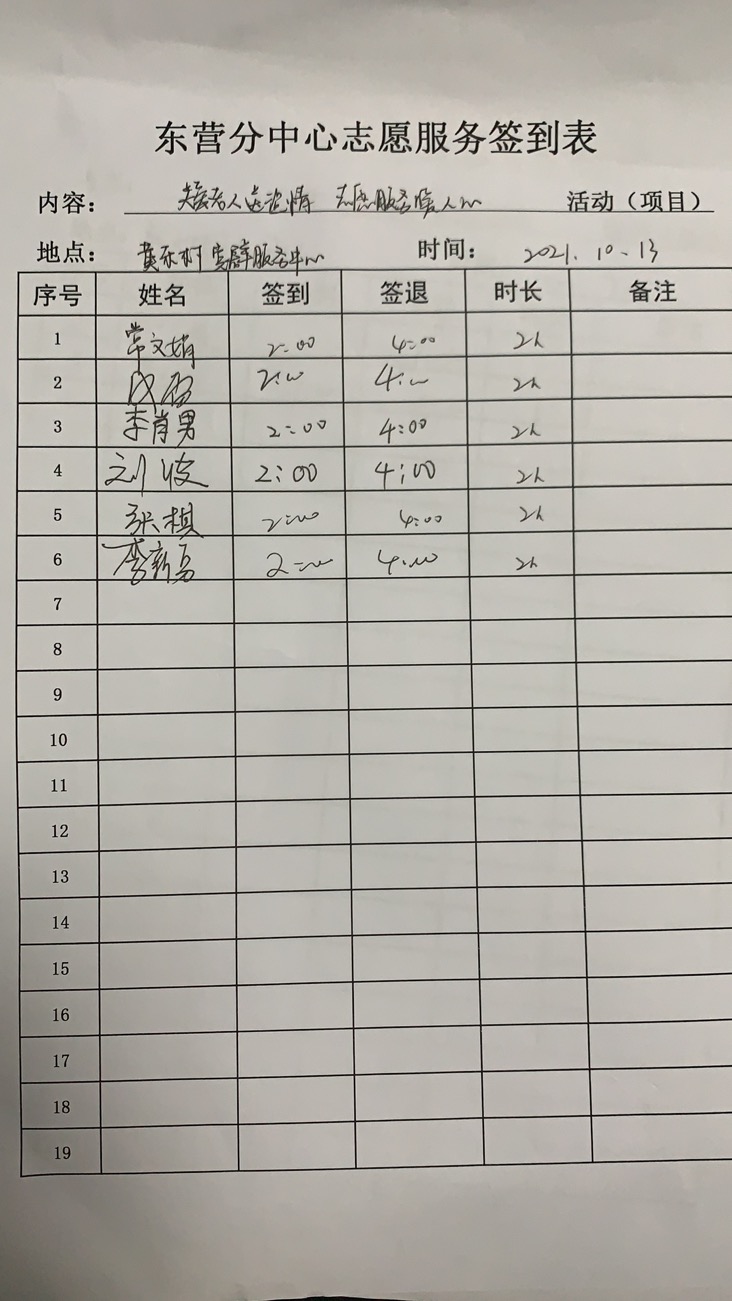 东营分中心志愿服务签到表
内容：关爱老人送温情 志愿服务暖人心 活动（项目）
地点：黄东村党群服务中心 时间：2021.10.13
序号 姓名 签到 签退 时长 备注
1 常文娟 2:00 4:00 2h
2 2:00 4:00 2h
3 李肖男 2:00 4:00 2h
4 刘波 2:00 4:00 2h
5 张棋 2:00 4:00 2h
6 李新勇 2:00 4:00 2h
7
8
9
10
11
12
13
14
15
16
17
18
19